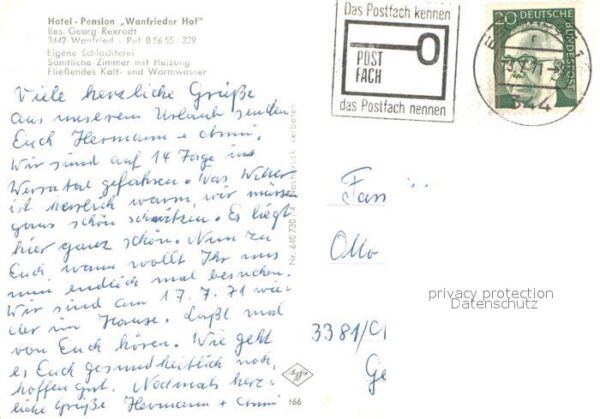 Hotel - Pension „Wanfrieder Hof"
Bes. Georg Rexrodt
3442 Wanfried - Ruf 0 56 55 - 339
Eigene Schlachterei
Sämtliche Zimmer mit Heizung
Fließendes Kalt- und Warmwasser
Viele herzliche Grüße
aus unserem Urlaub senden
Euch Hermann + Anni.
Wir sind auf 14 Tage ins
Werratal gefahren. Das Wetter
ist herrlich warm, wir müssen
ganz schön schwitzen. Es liegt
hier ganz schön. Nun zu
Euch, wann wollt Ihr uns
nun endlich mal besuchen.
Wir sind am 17. 7. 71 wie-
der im Hause. Laßt mal
von Euch hören. Wie geht
es Euch gesundheitlich noch,
hoffen gut. Nochmals herz-
liche Grüße Hermann + Anni
Nr. 640 730
verboten
Agfa
166
Das Postfach kennen
POST
FACH
das Postfach nennen
20 DEUTSCHE
BUNDESPOST
344
Fam
Otto
3381/
Ge
privacy protection
Datenschutz